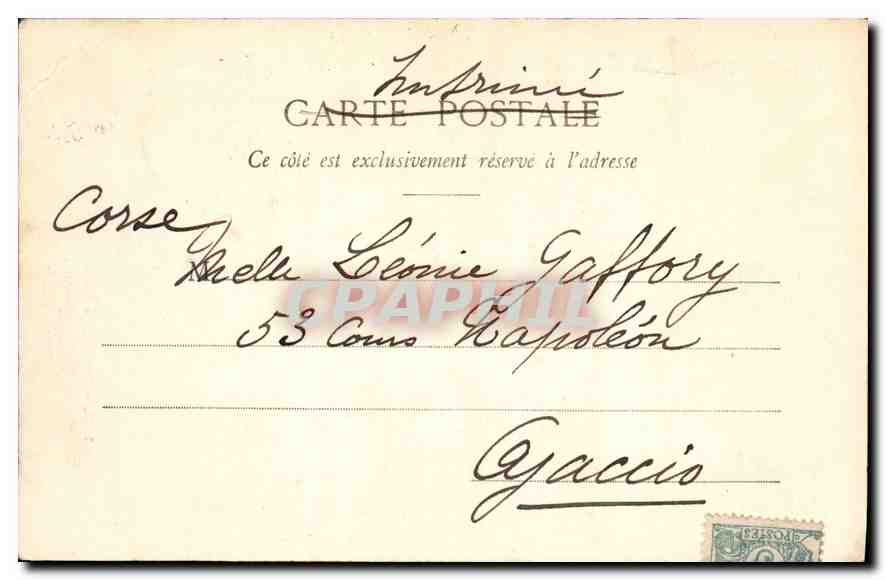 Imprimé
CARTE POSTALE
Ce côté est exclusivement réservé à l'adresse
Corse
Melle Léonie Gaffory
CPAPHIL
53 Cours Napoléon
Ajaccio
POSTES